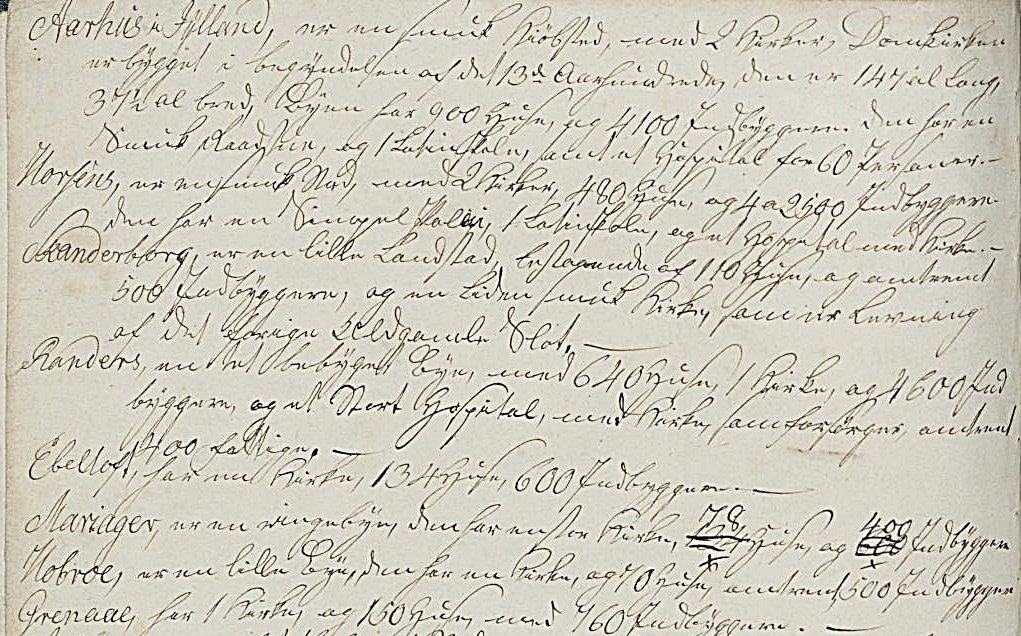 Aarhus i Jylland, er en smuk Kiöbsted, med 2 Kirker, Domkirken
er bygget i begyndelsen af det 13de Aarhundrede, den er 147 al lang,
37½ al bred, Byen har 900 Huse, og 4100 Indbyggere. den har en
Smuk Raadstue, og 1 Latinskole, samt et Hospital for 60 Personer.—
Horsens, er en smuk Stad, med 2 Kirker, 480 Huse, og 4 a 2500 Indbyggere.
den har en Simpel 1 Latinskole, og et Hospital med Kirke.—
Skanderborg, er en lille Landstad, bestaaende af 110 Huse, og omtrent
500 Indbyggere, og en liden smuk Kirke, som er Levning
af det forrige Ældgamle Slot.—
Randers, en tet bebygget Bye, med 640 Huse, 1 Kirke, og 4600 Ind
byggere, og et Stort Hospital, med Kirke, som forsörger omtrent
400 fattige.—
Ebeltoft, har en Kirke, 134 Huse, 600 Indbyggere.—
Mariager, er en ringe bye, den har en stor Kirke, 78 Huse, og 400 Indbyggere
Hobroe, er en lille Bye, den har en Kirke, og 70 Huse, omtrent 500 Indbygger
Grenaae, har 1 Kirke, og 150 Huse, med 760 Indbyggere.—